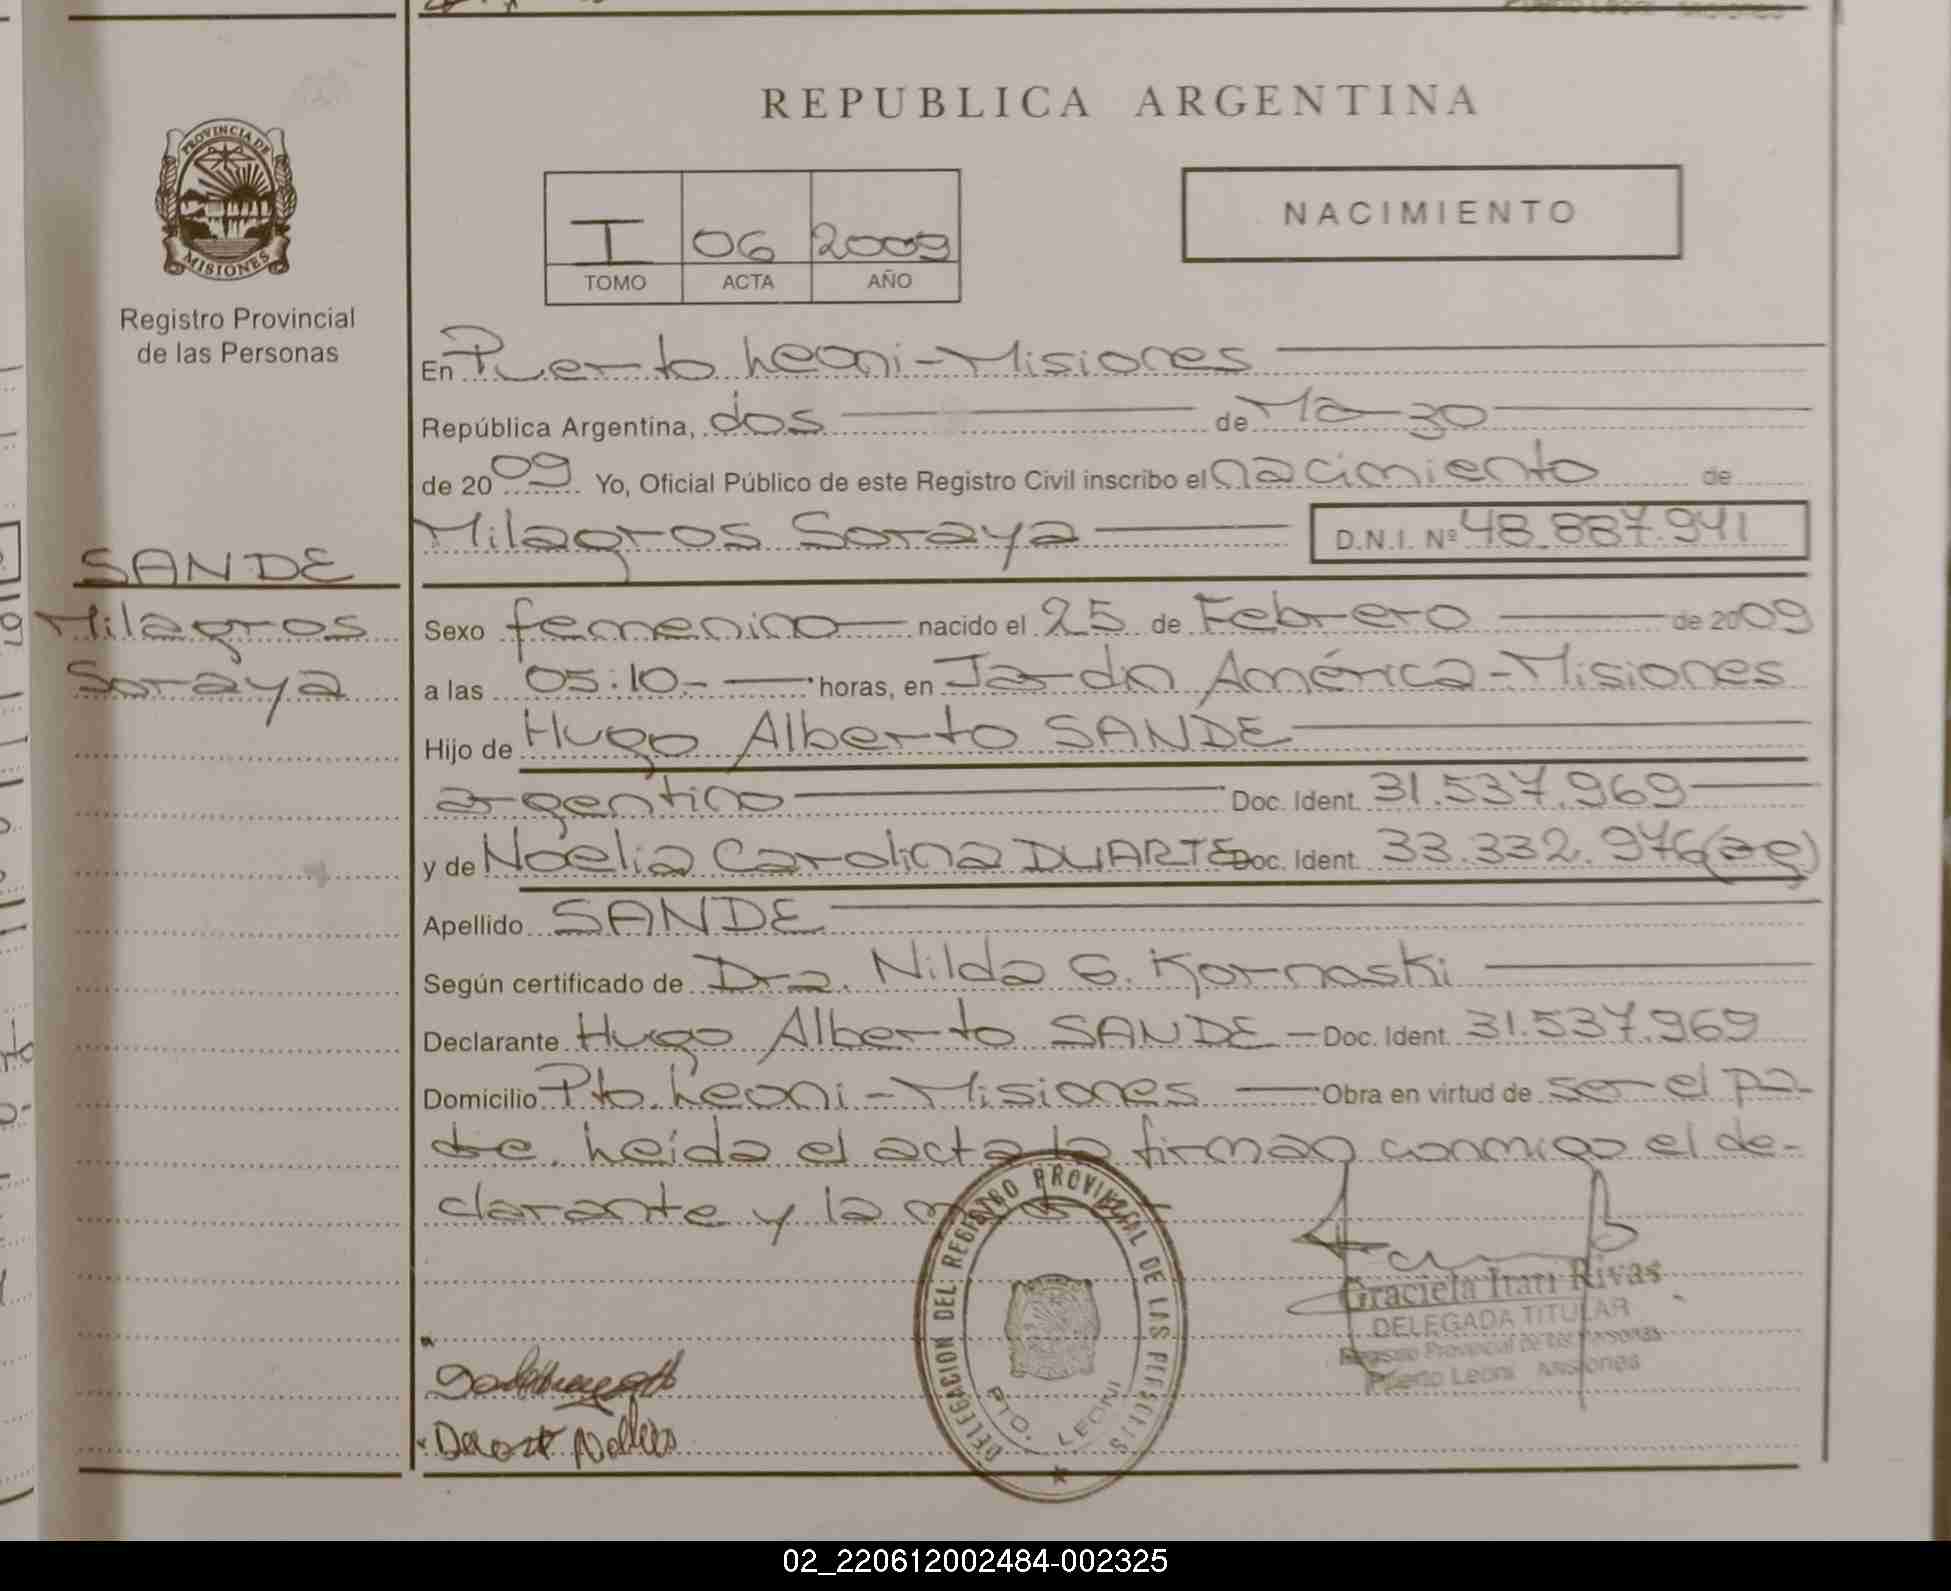 REPUBLICA ARGENTINA
PROVINCIA DE
MISIONES
Registro Provincial
de las Personas
I 06 2009
TOMO ACTA AÑO
NACIMIENTO
En Puerto Leoni - Misiones
República Argentina, dos de Marzo
de 2009 Yo, Oficial Público de este Registro Civil inscribo el nacimiento de
Milagros Soraya D.N.I. Nº 48.887.941
SANDE
Milagros
Soraya
Sexo femenino nacido el 25 de Febrero de 2009
a las 05:10.- horas, en Jardín América - Misiones
Hijo de Hugo Alberto SANDE
argentino Doc. Ident. 31.537.969
y de Noelia Carolina DUARTE Doc. Ident. 33.332.976 (ag)
Apellido SANDE
Según certificado de Dra. Nilda G. Kornoski
Declarante Hugo Alberto SANDE - Doc. Ident. 31.537.969
Domicilio Pto. Leoni - Misiones Obra en virtud de ser el pa-
dre. Leída el acta la firman conmigo el de-
clarante y la
DELEGACION DEL REGISTRO PROVINCIAL DE LAS PERSONAS
PTO. LEONI
Graciela Itatí Rivas
DELEGADA TITULAR
Registro Provincial de las Personas
Puerto Leoni Misiones
02_220612002484-002325